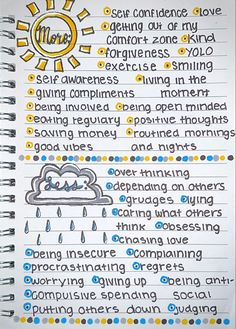 More:
self confidence love
getting out of my
comfort zone kind
forgiveness YOLO
exercise smiling
self awareness living in the
giving compliments moment
being involved being open minded
eating regulary positive thoughts
saving money routined mornings
good vibes and nights
less
over thinking
depending on others
grudges lying
caring what others
think obsessing
chasing love
being insecure complaining
procrastinating regrets
worrying giving up being anti-
compulsive spending social
putting others down judging